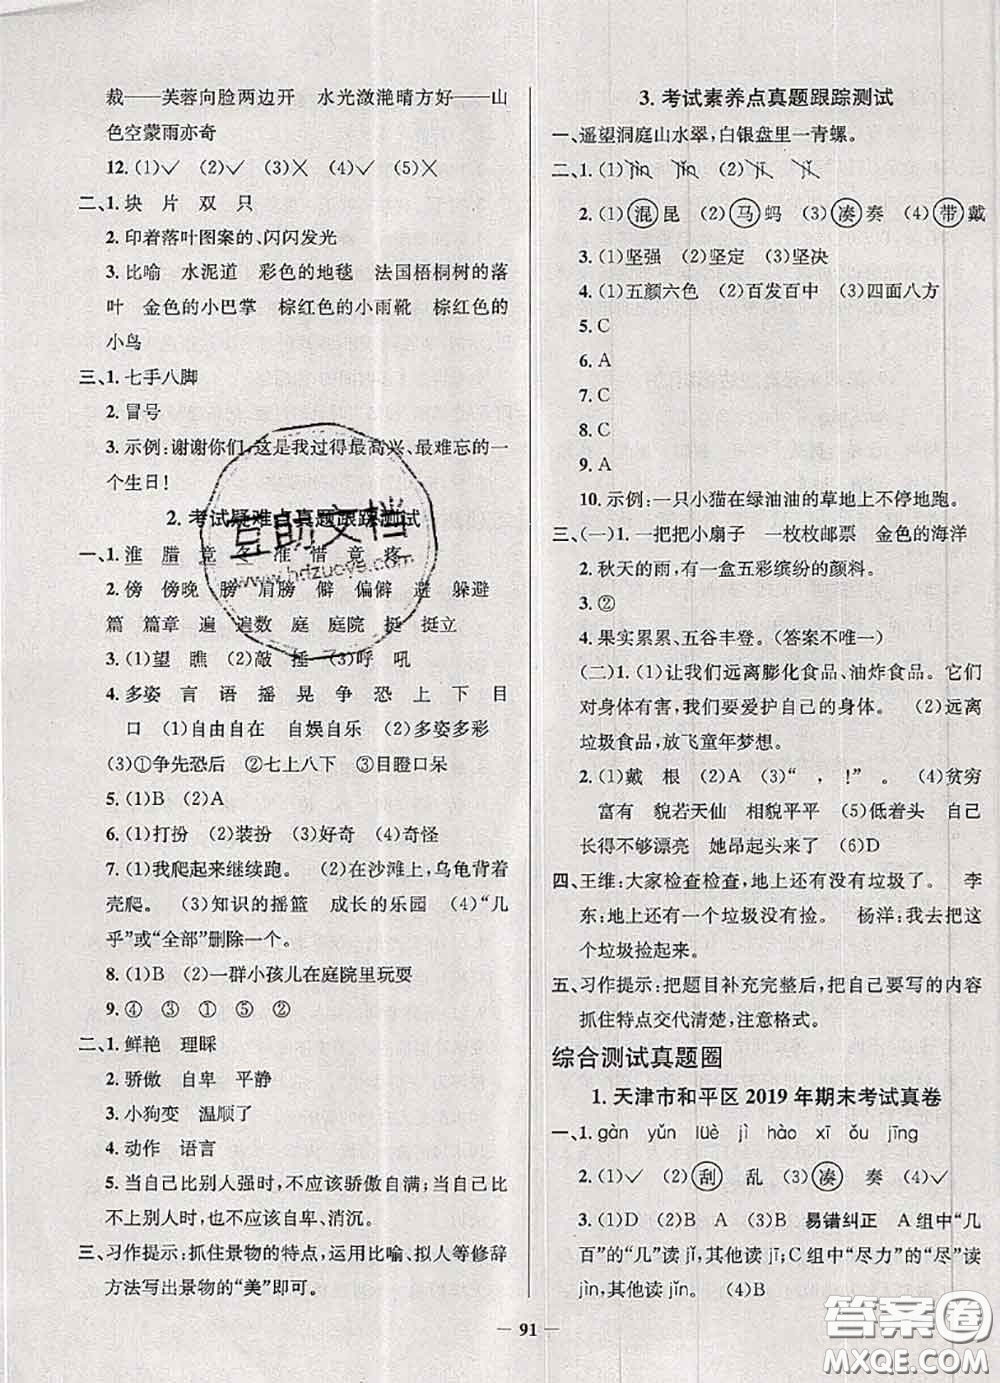 裁——芙蓉向脸两边开　水光潋滟晴方好——山
色空蒙雨亦奇
12.(1)✓　(2)✓　(3)╳　(4)✓　(5)╳
二、1.块　片　双　只
2.印着落叶图案的、闪闪发光
3.比喻　水泥道　彩色的地毯　法国梧桐树的落
叶　金色的小巴掌　棕红色的小雨靴　棕红色的
小鸟
三、1.七手八脚
2.冒号
3.示例:谢谢你们,这是我过得最高兴、最难忘的一
个生日!
2.考试疑难点真题跟踪测试
一、1.淮　腊　竟　冬　准　惜　竟　疼
2.傍　傍晚　膀　肩膀　僻　偏僻　避　躲避
篇　篇章　遍　遍数　庭　庭院　挺　挺立
3.(1)望　瞧　(2)敲　摇　(3)呼　吼
4.多姿　言　语　摇　晃　争　恐　上　下　目
口　(1)自由自在　自娱自乐　(2)多姿多彩
(3)①争先恐后　②七上八下　③目瞪口呆
5.(1)B　(2)A
6.(1)打扮　(2)装扮　(3)好奇　(4)奇怪
7.(1)我爬起来继续跑。　(2)在沙滩上,乌龟背着
壳爬。　(3)知识的摇篮　成长的乐园　(4)“几
乎”或“全部”删除一个。
8.(1)B　(2)一群小孩儿在庭院里玩耍
9.④　③　①　⑤　②
二、1.鲜艳　理睬
2.骄傲　自卑　平静
3.小狗变　温顺了
4.动作　语言
5.当自己比别人强时,不应该骄傲自满;当自己比
不上别人时,也不应该自卑、消沉。
三、习作提示:抓住景物的特点,运用比喻、拟人等修辞
方法写出景物的“美”即可。
3.考试素养点真题跟踪测试
一、遥望洞庭山水翠,白银盘里一青螺。
二、1.(1)jìn　jǐn　(2)jī　jǐ
2.(1)混昆　(2)马蚂　(3)凑奏　(4)带戴
3.(1)坚强　(2)坚定　(3)坚决
4.(1)五颜六色　(2)百发百中　(3)四面八方
5.C
6.A
7.C
8.C
9.A
10.示例:一只小猫在绿油油的草地上不停地跑。
三、(一)1.一把把小扇子　一枚枚邮票　金色的海洋
2.秋天的雨,有一盒五彩缤纷的颜料。
3.②
4.果实累累、五谷丰登。(答案不唯一)
(二)1.(1)让我们远离膨化食品、油炸食品。它们
对身体有害,我们要爱护自己的身体。　(2)远离
垃圾食品,放飞童年梦想。
2.(1)戴　根　(2)A　(3)“　,　!”　。　(4)贫穷
富有　貌若天仙　相貌平平　(5)低着头　自己
长得不够漂亮　她昂起头来　(6)D
四、王维:大家检查检查,地上还有没有垃圾了。　李
东:地上还有一个垃圾没有捡。　杨洋:我去把这
个垃圾捡起来。
五、习作提示:把题目补充完整后,把自己要写的内容
抓住特点交代清楚,注意格式。
综合测试真题圈
1.天津市和平区2019年期末考试真卷
一、1.gàn　yǔn　lüè　jì　hào　xī　ǒu　jīng
2.(1)✓　(2)刮　乱　(3)凑　奏　(4)✓
3.(1)D　(2)B　A　(3)B　易错纠正　A组中“几
百”的“几”读jǐ,其他读jī;C组中“尽力”的“尽”读
jìn,其他读jǐn。　(4)B
— 91 —
互助文档
www.hdzuoye.com
答案圈
MXQE.COM